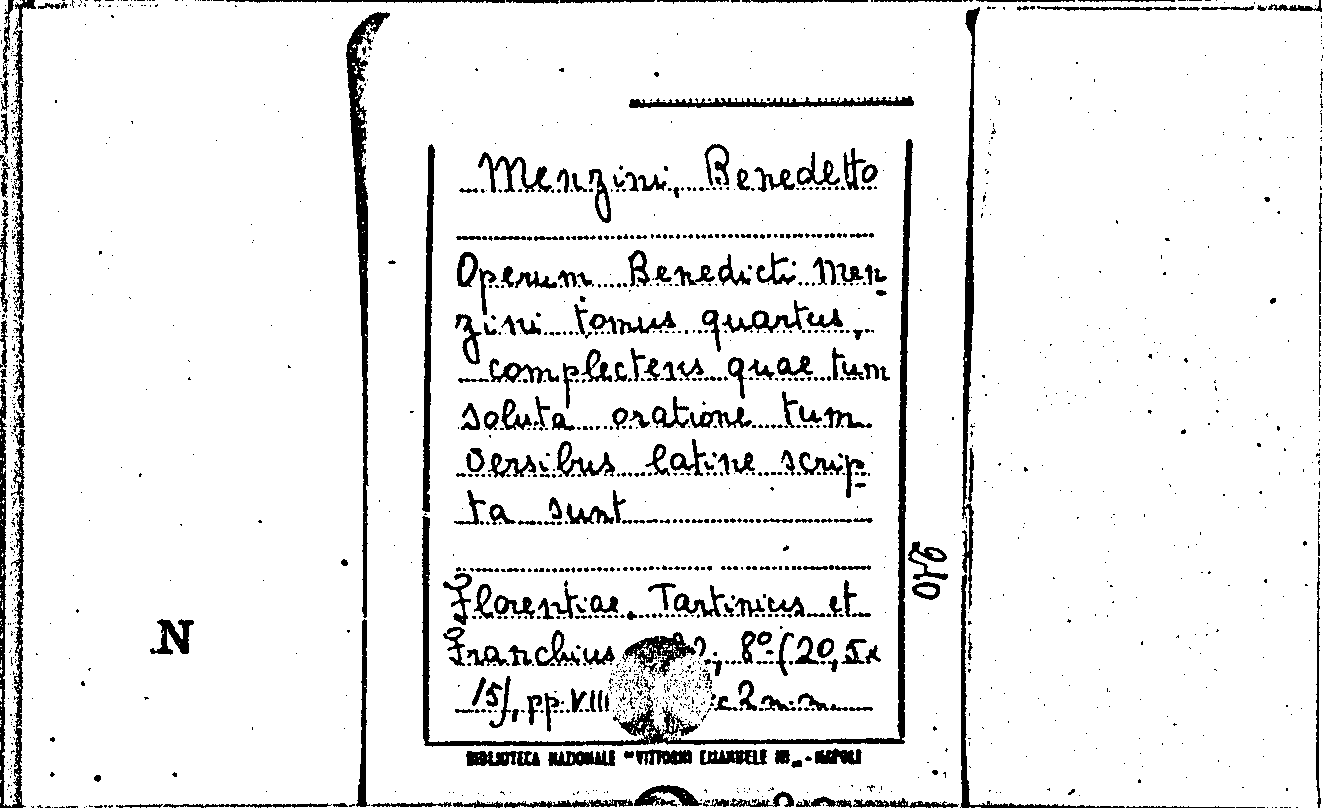 Menzini, Benedetto
Operum Benedicti Men-
zini tomus quartus,
complectens quae tum
soluta oratione tum
versibus latine scrip-
ta sunt
Florentiae, Tartinius et
Franchius, 8º (20,5x
15), pp. VIII c. 2 n.n.
BIBLIOTECA NAZIONALE "VITTORIO EMANUELE III" - NAPOLI
N